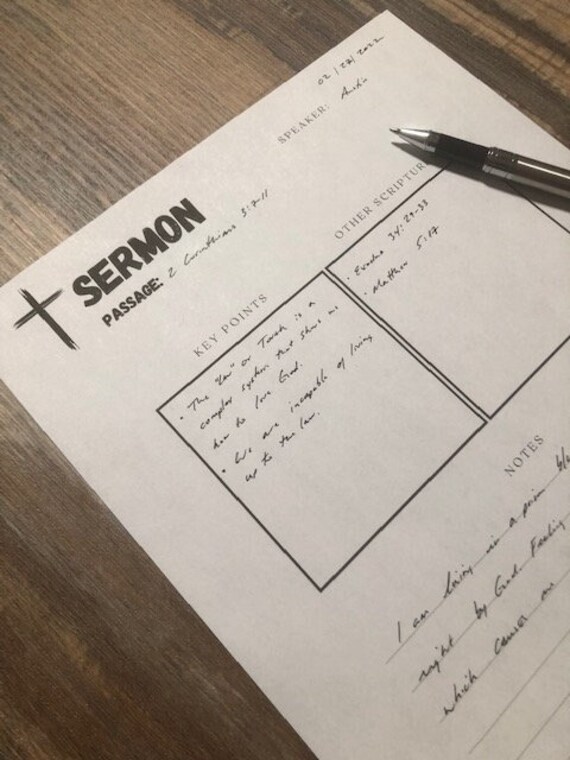 02/27/2022
SPEAKER: Austin
SERMON
PASSAGE: 2 Corinthians 3:7-11
KEY POINTS
• The "Law" or Torah is a
complex system that shows us
how to love God.
• We are incapable of living
up to the law.
OTHER SCRIPTURE
• Exodus 34:29-33
• Matthew 5:17
NOTES
I am living in a prison
right by God. Feeling
which causes me